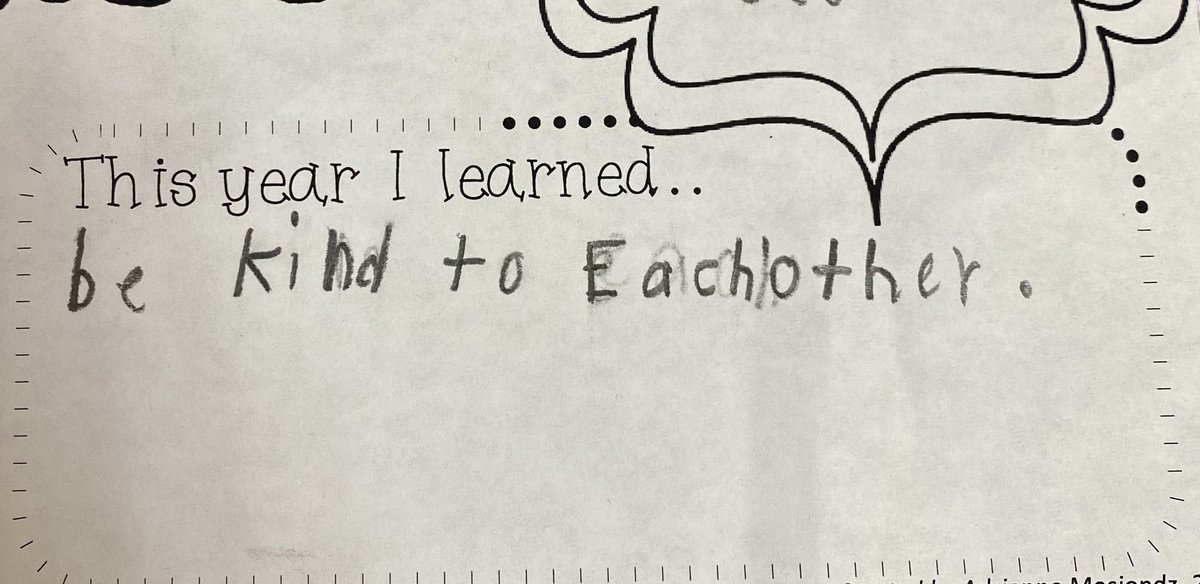 This year I learned..
be kind to Eachother.